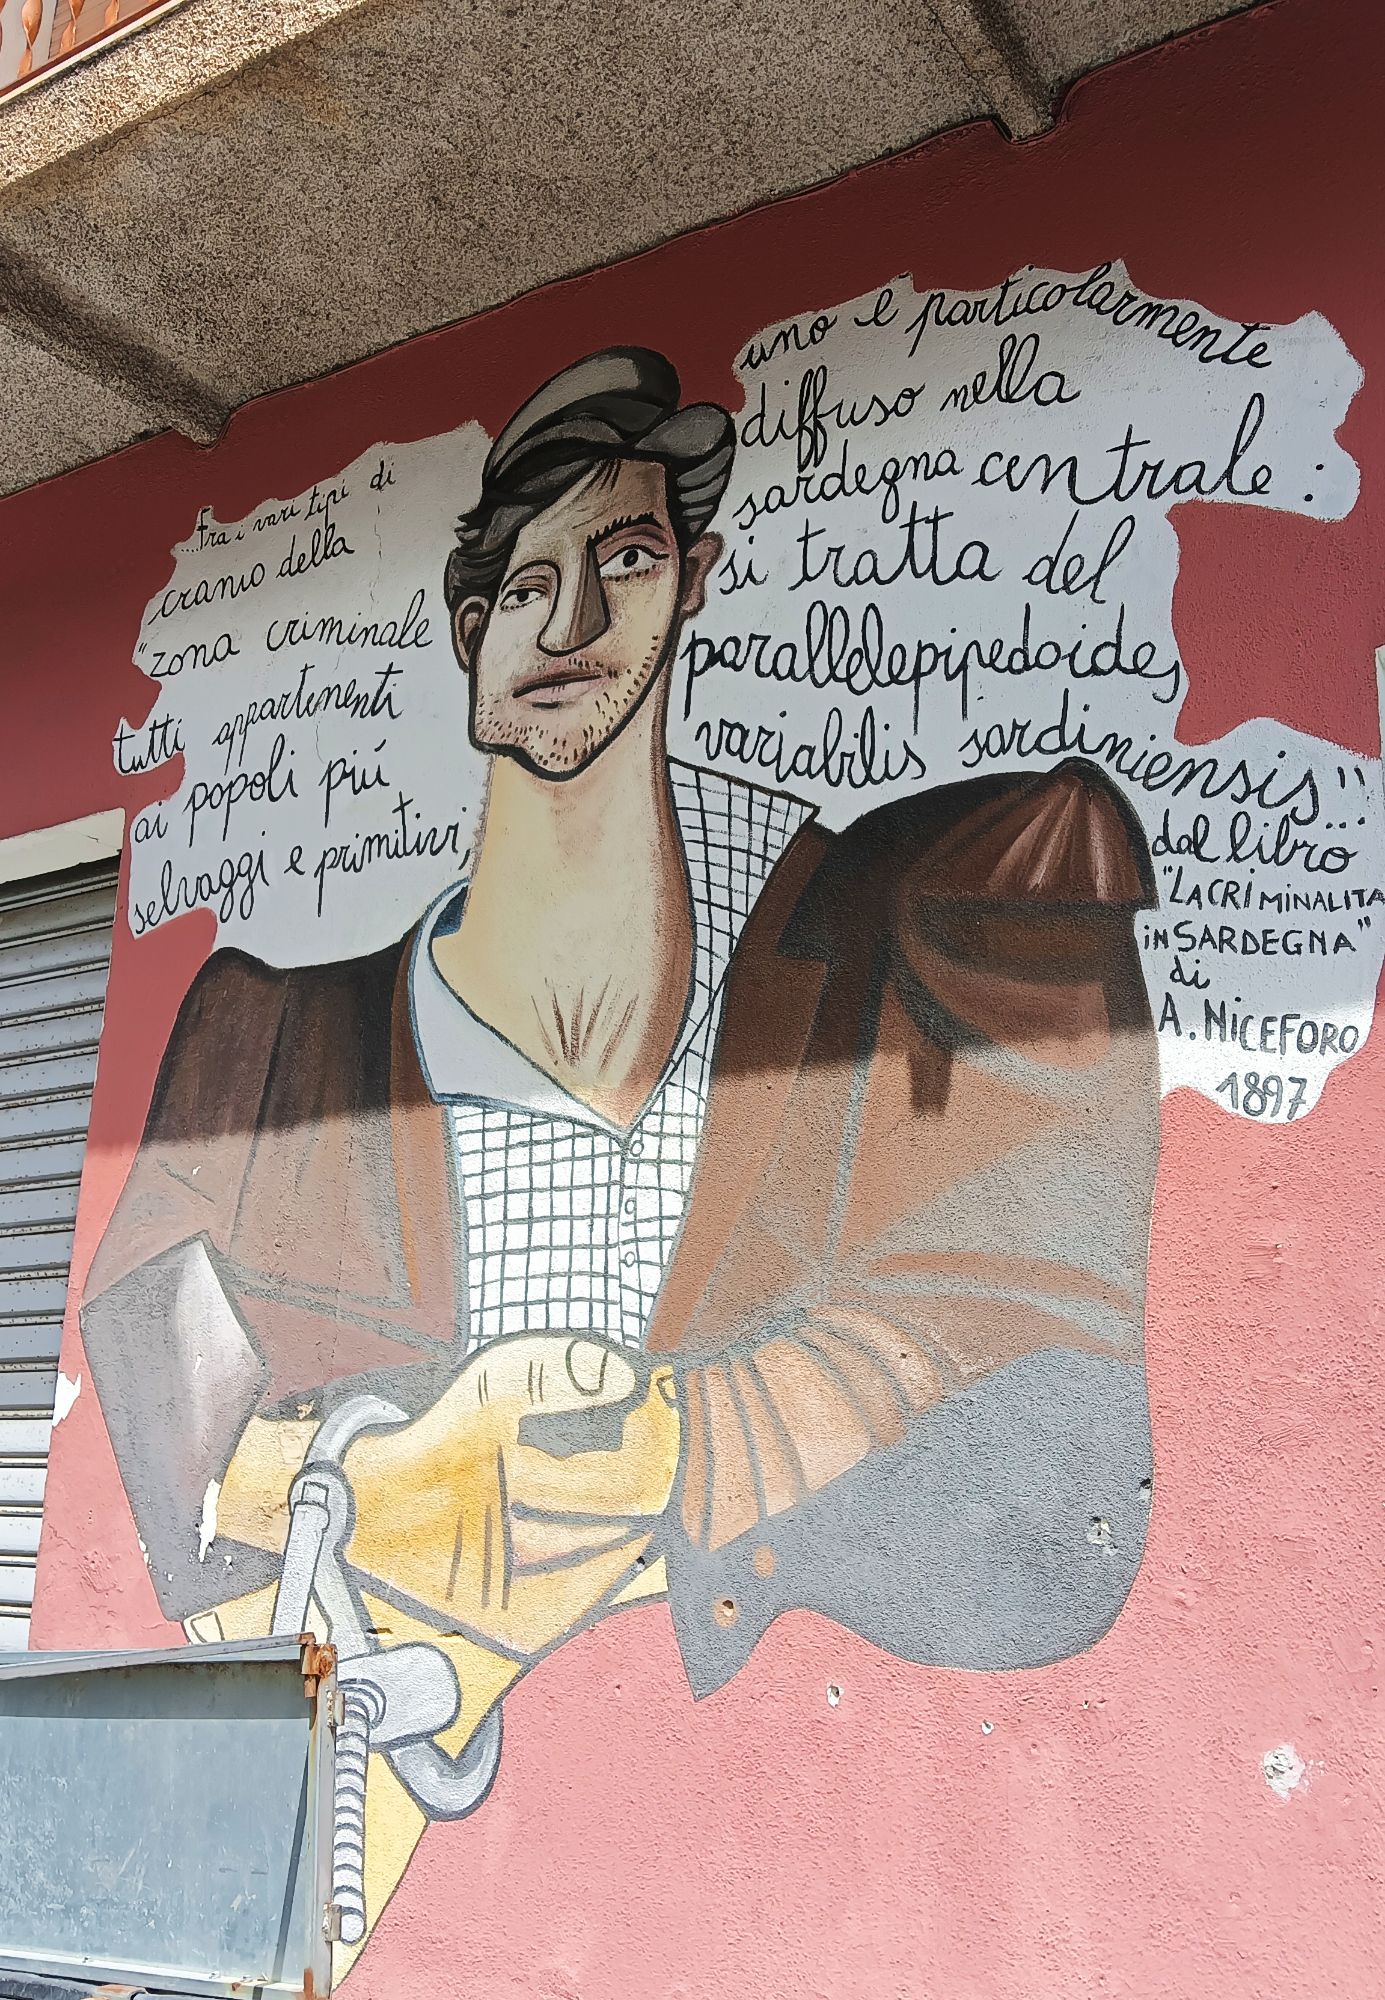 ....fra i vari tipi di
cranio della
"zona criminale
tutti appartenenti
ai popoli più
selvaggi e primitivi,
uno è particolarmente
diffuso nella
sardegna centrale:
si tratta del
parallelepipedoides
variabilis sardiniensis!!...
dal libro
"LA CRIMINALITA
in SARDEGNA"
di
A. NiCEFORO
1897